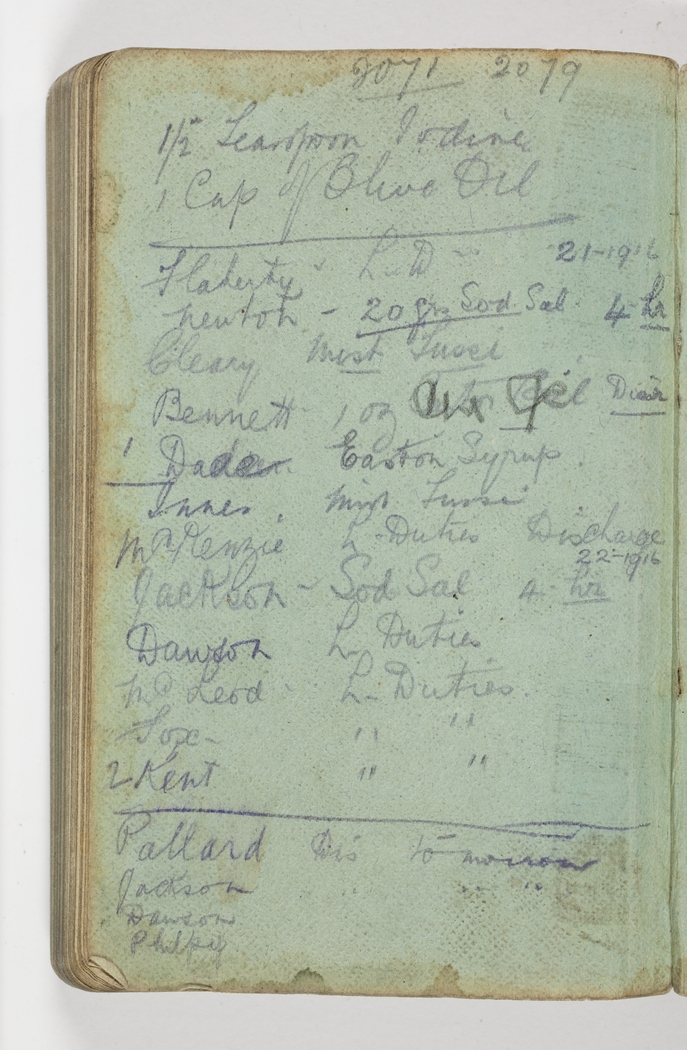 2071 2079
1/2 Teaspoon Iodine
1 Cap of Olive Oil
Flaherty L. D 21-1916
Newton - 20 grs Sod Sal 4 hr
Cleary Mist Tussi
Bennett 1 oz Oil
1 Easton Syrup.
Innes. Mist Tussi
McKenzie L. Duties Discharge
22-1916
Jackson - Sod Sal 4 hr
Dawson L. Duties
McLeod L. Duties.
Fox - " "
2 Kent " "
Pallard Dis tomorrow
Jackson " " "
Dawson